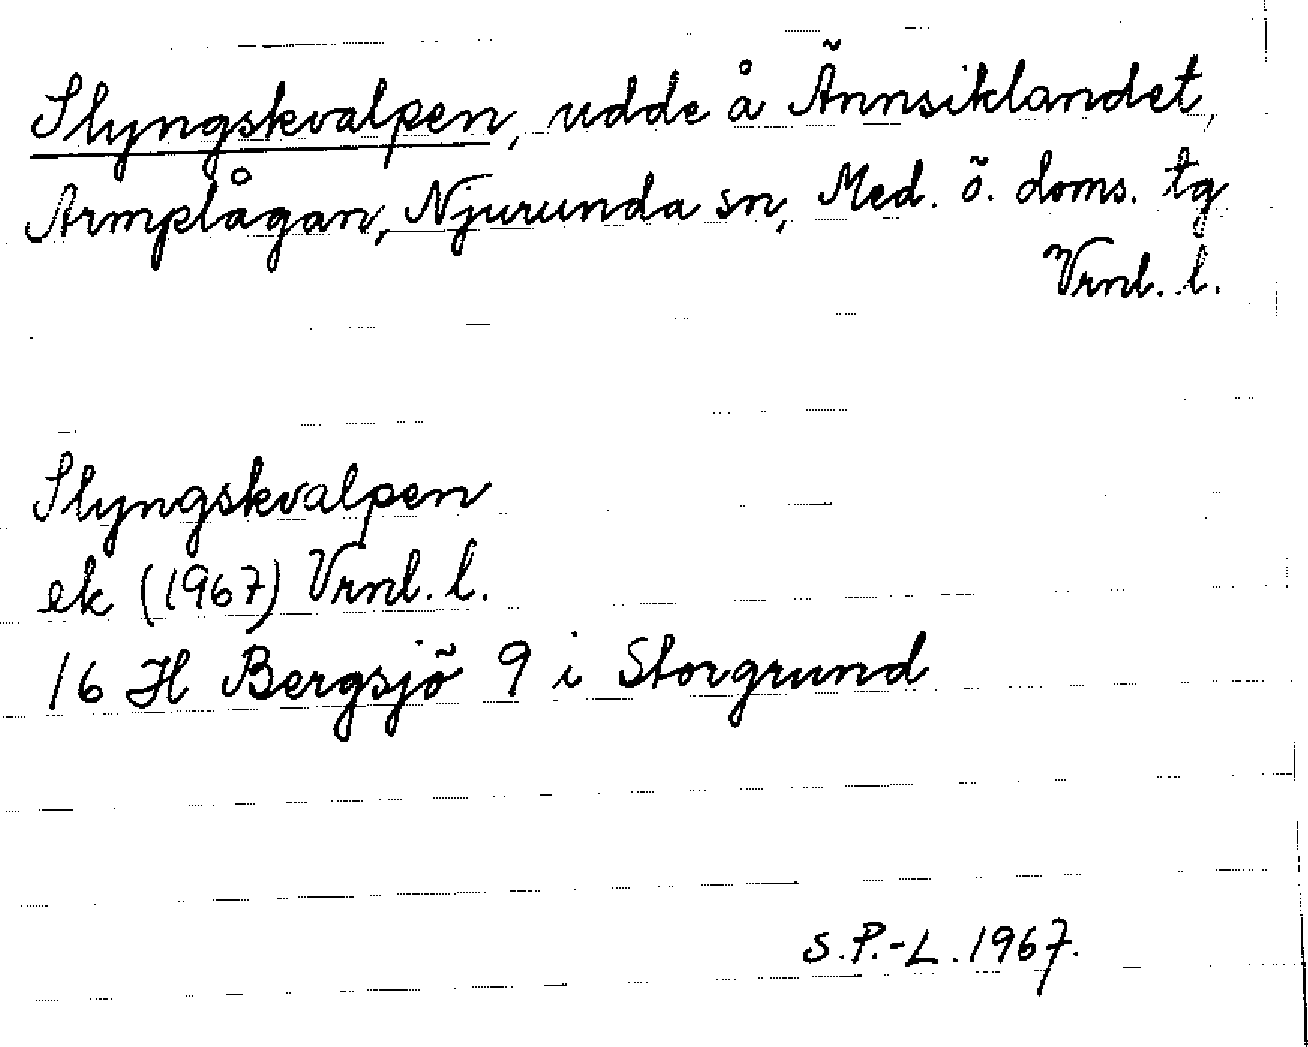 Slyngskvalpen, udde å Ännsiklandet,
Armplågan, Njurunda sn, Med. ö. doms. tg
Vrnl. l.
Slyngskvalpen
ek (1967) Vrnl. l.
16 H Bergsjö 9 i Storgrund
S.P.-L. 1967.